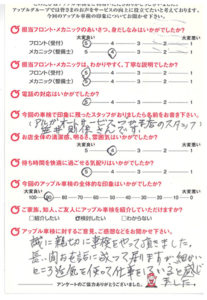 アップルグループでは皆さまのお声をサービスの向上に役立てたいと考えております。
今回のアップル車検の印象についてお聞かせ下さい。
担当フロント・メカニックのあいさつ、身だしなみはいかがでしたか?
大変良い 大変悪い
フロント(受付) 5 4 3 2 1
メカニック(整備士) 5 4 3 2 1
担当フロント・メカニックは、わかりやすく、丁寧な説明でしたか?
大変良い 大変悪い
フロント(受付) 5 4 3 2 1
メカニック(整備士) 5 4 3 2 1
電話の対応はいかがでしたか?
5 4 3 2 1
今回の車検で印象に残ったスタッフがおりましたら名前をお書き下さい。
お店全体の清潔感、明るさ、雰囲気はいかがでしたか?
5 4 3 2 1
待ち時間を快適に過ごせる気配りはいかがでしたか?
5 4 3 2 1
今回のアップル車検の全体的な印象はいかがでしたか?
大変良い 大変悪い
100 90 80 70 60 50 40 30 20 10
ご家族、知人、ご友人にアップル車検を紹介していただけますか?
紹介したい 検討したい わからない
アップル車検に対するご意見、ご感想などをお聞かせ下さい。
誠に親切に車検をやって頂きました。
長い間お世話に成って居りますが細かい
ところ迄気を使って仕事をしていると感じ
ました。
アンケートのご協力ありがとうございました。